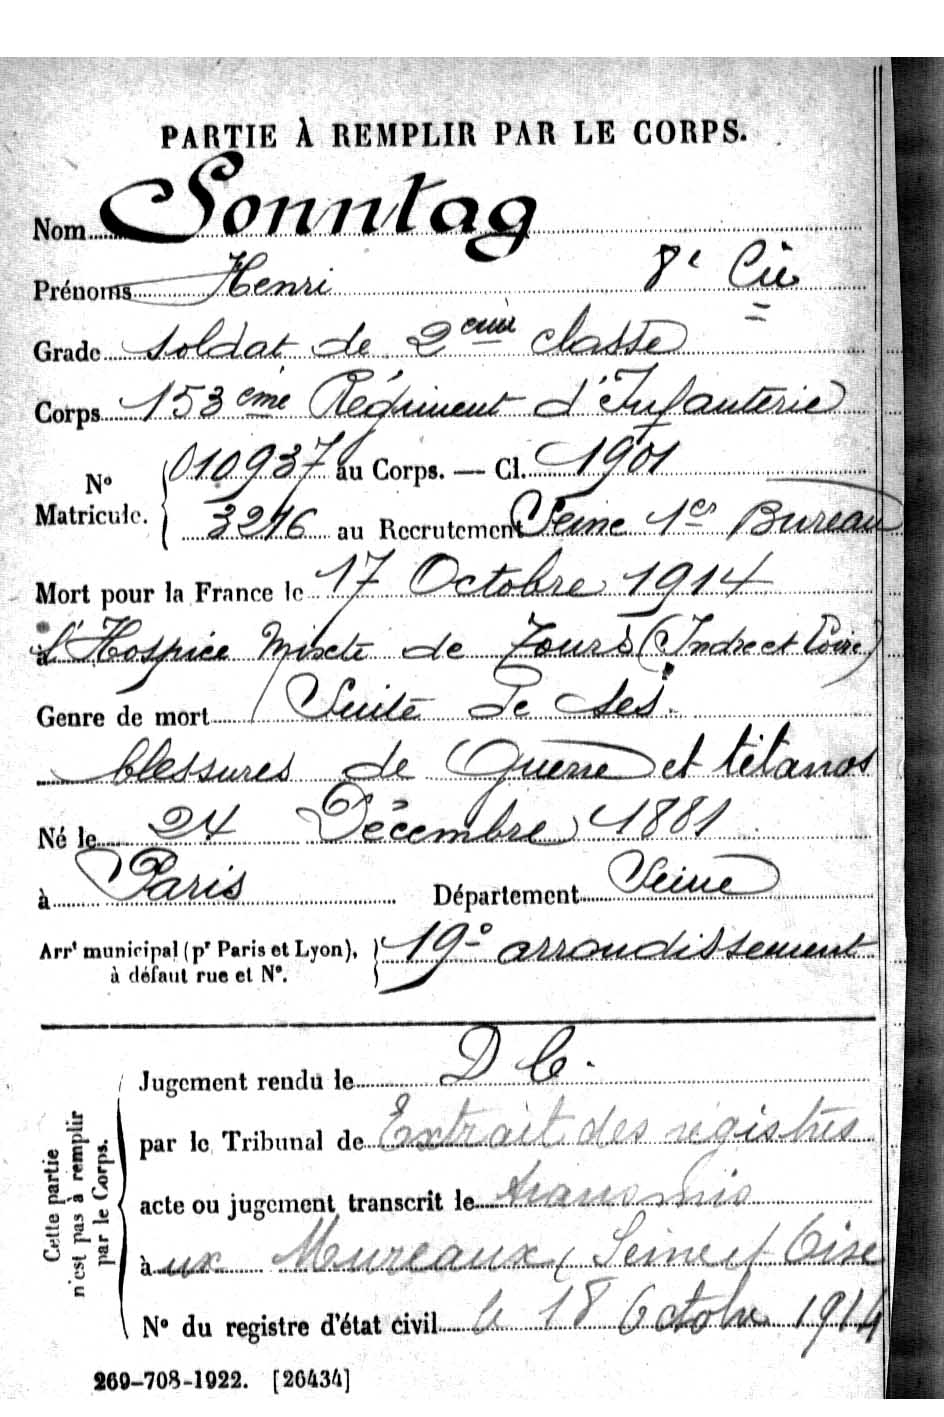 PARTIE À REMPLIR PAR LE CORPS.
Nom Sonntag
Prénoms Henri 8e Cie
Grade soldat de 2ème classe
Corps 153ème Régiment d'Infanterie
No Matricule. { 010937 au Corps. — Cl. 1901
3276 au Recrutement Seine 1er Bureau
Mort pour la France le 17 Octobre 1914
à l'Hospice Mixte de Tours (Indre et Loire)
Genre de mort Suite de ses
blessures de Guerre et tétanos
Né le 24 Décembre 1881
à Paris Département Seine
Arrt municipal (pr Paris et Lyon), à défaut rue et No. } 19e arrondissement
Cette partie n'est pas à remplir par le Corps.
Jugement rendu le D C.
par le Tribunal de Extrait des registres
acte ou jugement transcrit le transmis
à ux Mureaux (Seine et Oise
No du registre d'état civil le 18 Octobre 1914
269-708-1922. [26434]